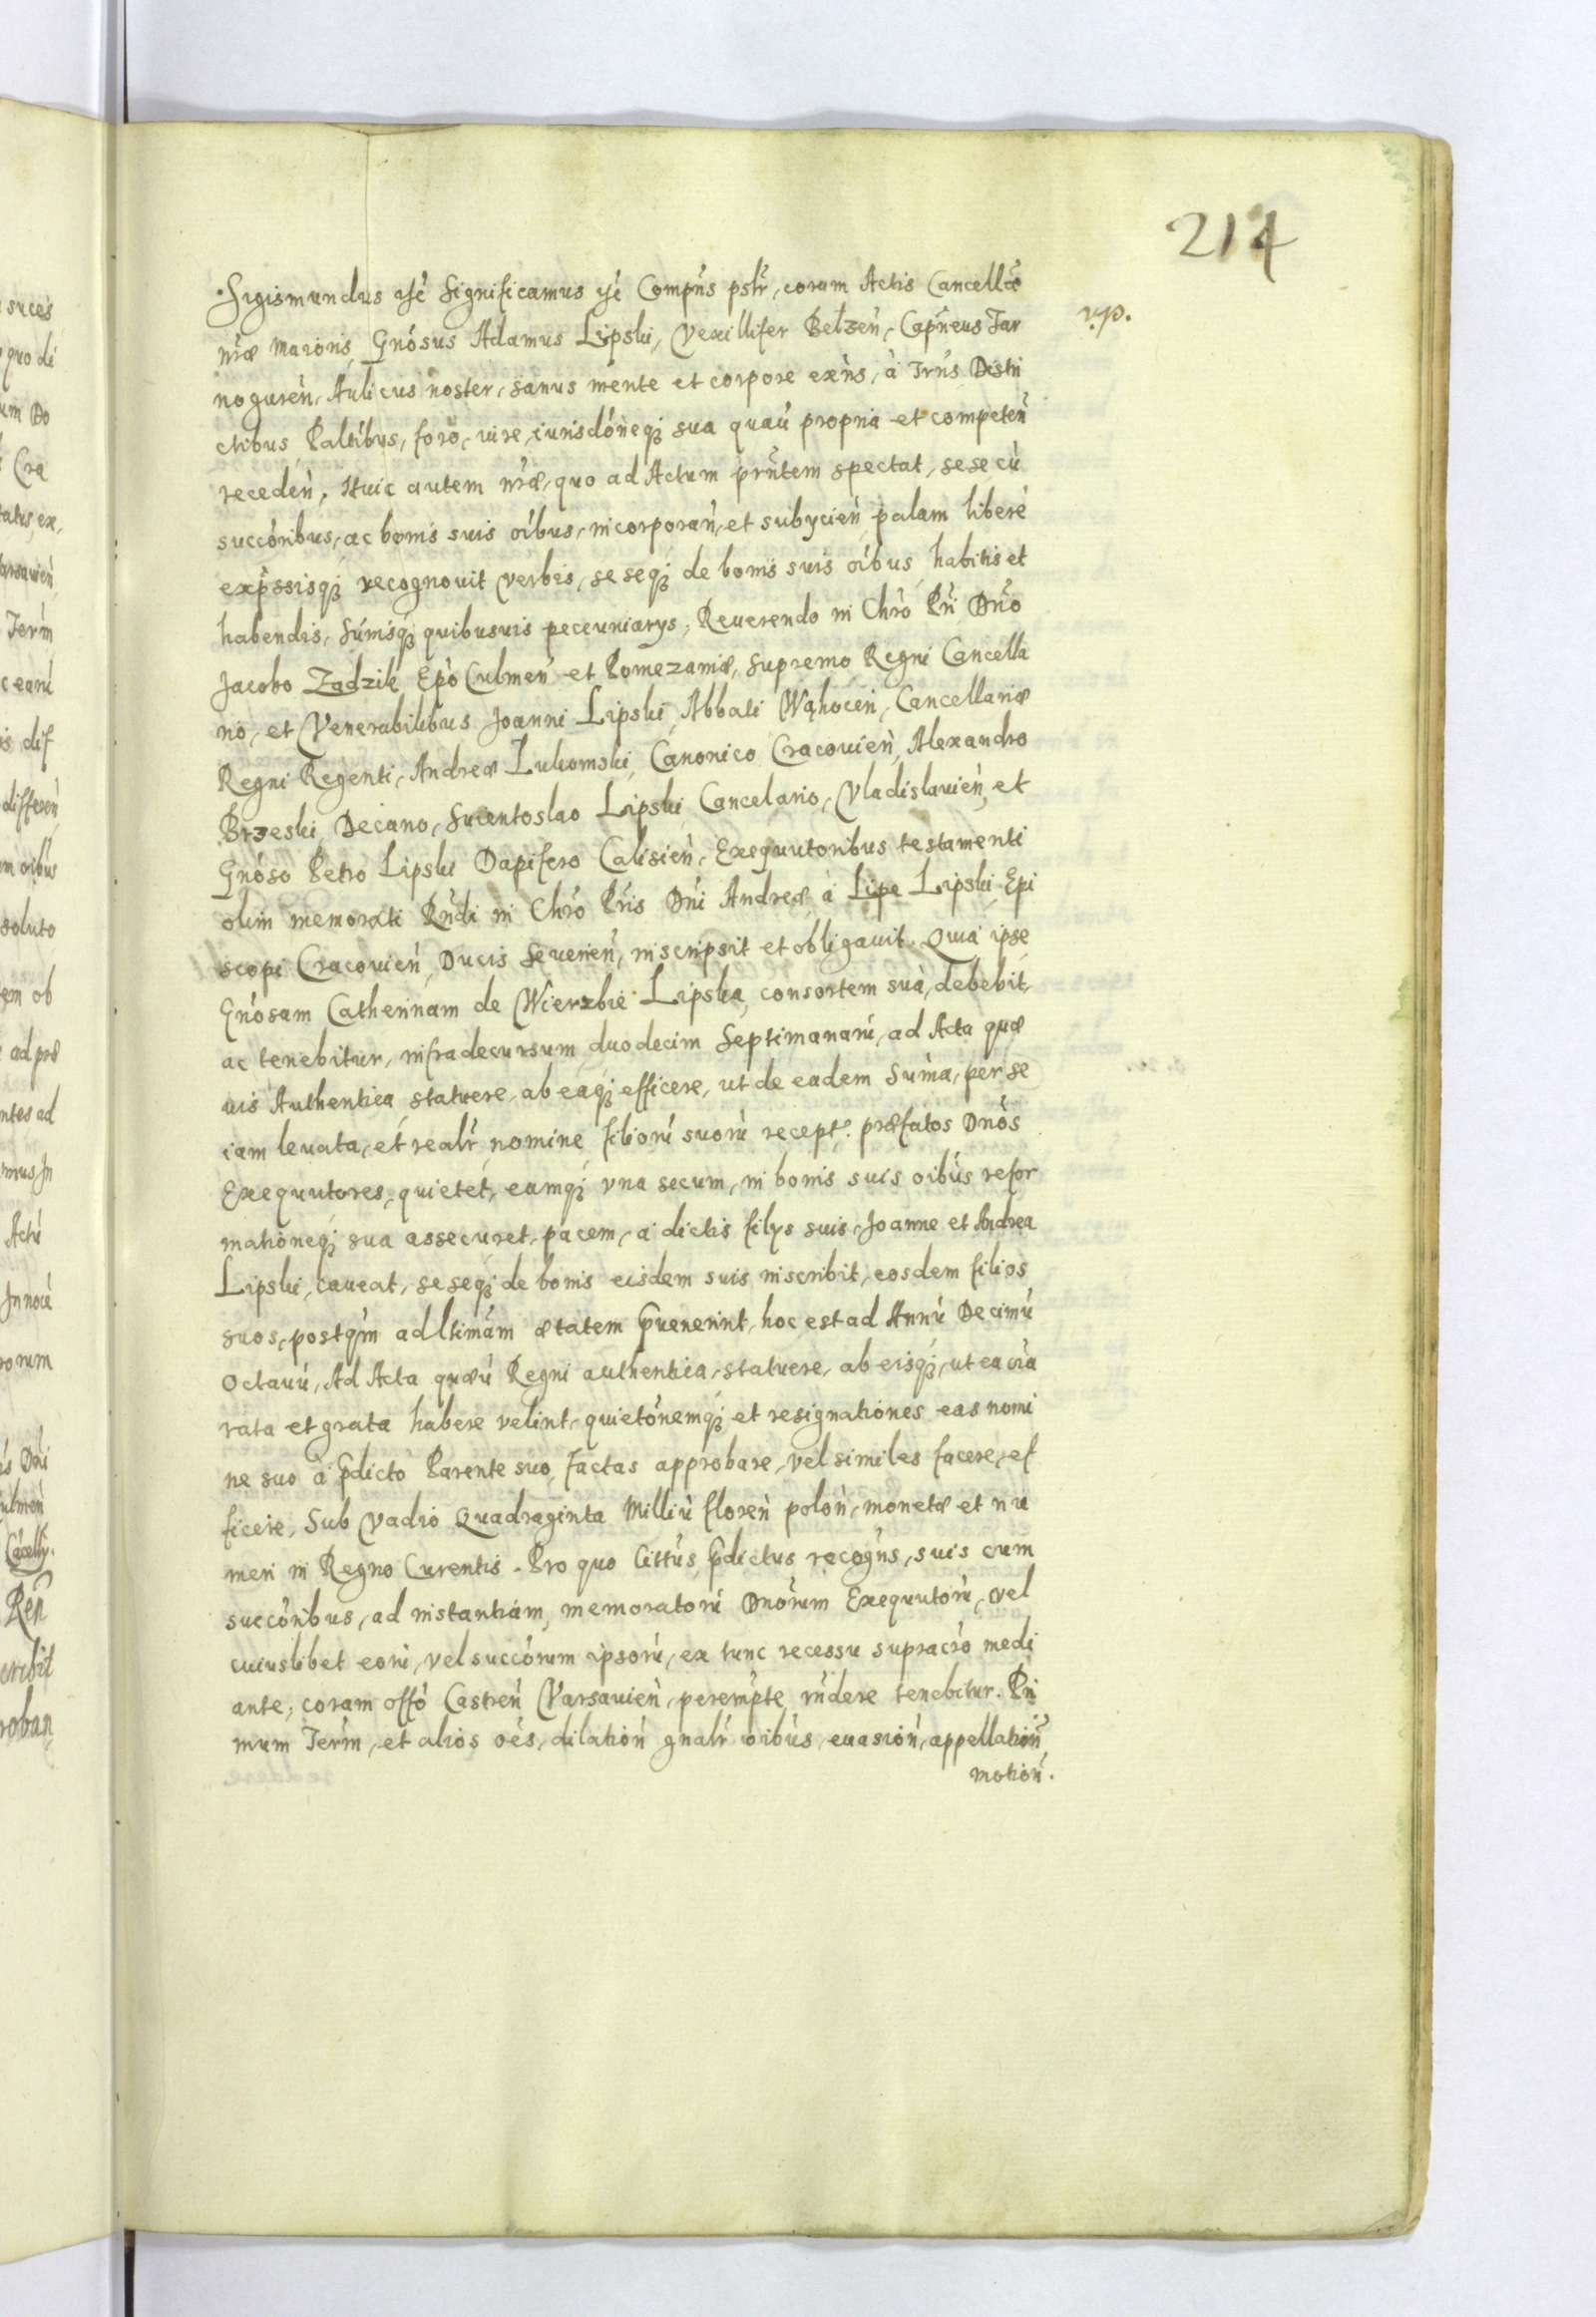 214
Sigismundus &c̃ Significamus &c̃ Comp̃ns pslr̃, coram Actis Cancellæ
v.p.
nr̃æ Maioris, Gn̄ósus Adamus Lipski, Vexillifer Bełzen̄, Cap̃neus Tar
noguren̄, Aulicus noster, sanus mente et corpore exñs, à Trñs Distri
ctibus, Paltībus, forō, iure, iurisdōneq; sua quau̇ propria et competen̄
receden̄, Huic autem nr̃æ, quo ad Actum prñtem spectat, sese cū
succōribus, ac bonis suis oībus, incorporan̄, et subycien̄, palam liberè
exp̃ssisq; recognouit verbis, se seq; de bonis suis oībus, habitis et
habendis, Sum̄isq; quibusuis pecuniarys, Reuerendo in Chrō Pr̃i Dn̄o
Jacobo Zadzik Ep̃o Culmen̄ et Pomezaniæ, Supremo Regni Cancella
rio, et Venerabilibus Joanni Lipski, Abbati Wąhocen̄, Cancellariæ
Regni Regenti, Andreæ Lukomski, Canonico Cracouien̄, Alexandro
Brzeski, Decano, Suentoslao Lipski Cancelario, Vladislauien̄, et
Gn̄óso Petro Lipski Dapifero Calisien̄, Exequutoribus testamenti
olim memorati Rn̄di in Chrō Pr̃is Dn̄i Andreæ à Lipe Lipski, Epi
scopi Cracouien̄, Ducis Seuerien̄, inscripsit et obligauit. Quia ipse
Gn̄ósam Catherinam de Wierzbie Lipska, consortem suā, debebit,
ac tenebitur, infra decursum duodecim Septimanarū, ad Acta quæ
uis Authentica statuere, ab eaq; efficere, ut de eadem Sum̄a, per se
iam leuata, et realr̃, nomine filiorū suorū recept. præfatos Dn̄os
Exequutores, quietet, eamq; vna secum, in bonis suis oībus refor
mationeq; sua assecuret, pacem, à dictis filys suis, Joanne et Andrea
Lipski, caueat, se seq; de bonis eisdem suis inscribit, eosdem filios
suos, postq̃m ad ltimam ætatem p̃uenerint, hoc est ad Annū Decimū
Octauū, Ad Acta quæuū Regni authentica, statuere, ab eisq;, ut ea oīa
rata et grata habere velint, quietōnemq; et resignationes eas nomi
ne suo à p̃dicto Parente suo, factas approbare, vel similes facere, ef
ficere, Sub Vadio Quadraginta Milliū floren̄ polon̄, monetæ et nu
meri in Regno Curentis. Pro quo Cittus, p̃dictus recogn̄s, suis cum
succōribus, ad instantiam, memoratorū Dn̄orum Exequutorū, vel
cuiuslibet eorū, vel succōrum ipsorū, ex tunc recessu supracr̃o medi
ante, coram offō Castren̄ Varsauien̄, perempt̄e rñdere tenebitur. Pri
mum Term̄, et alios oēs, dilation̄ gnalr̃ oibus, euasion̄, appellation̄
motion̄.